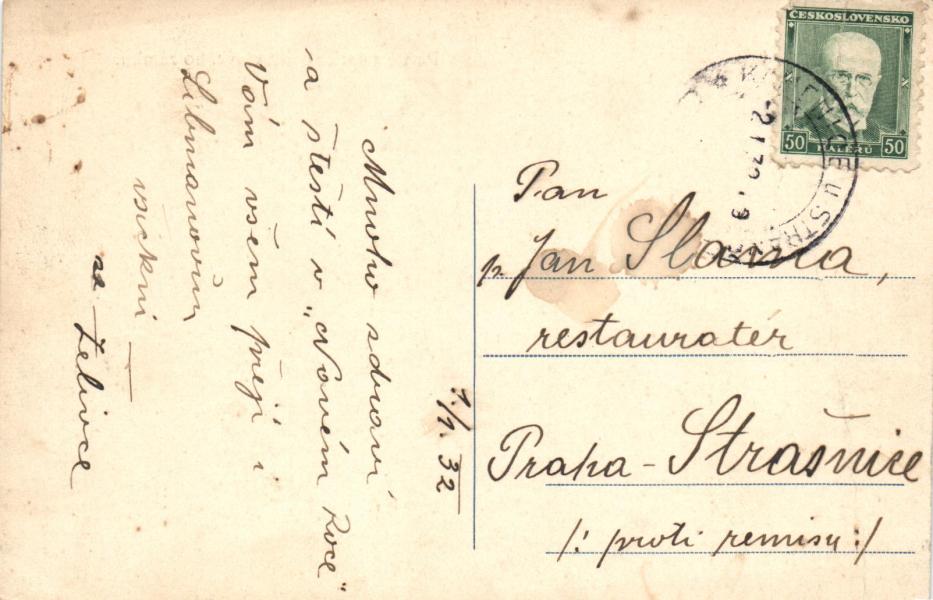 Mnoho zdraví
a štěstí v „Novém roce"
Vám všem přejí i
všickni
ze Želivce
1./1. 32
ČESKOSLOVENSKO
50 HALÉŘŮ 50
Pan
p. Jan Slavna,
restauratér
Praha - Strašnice
/: proti remisu :/